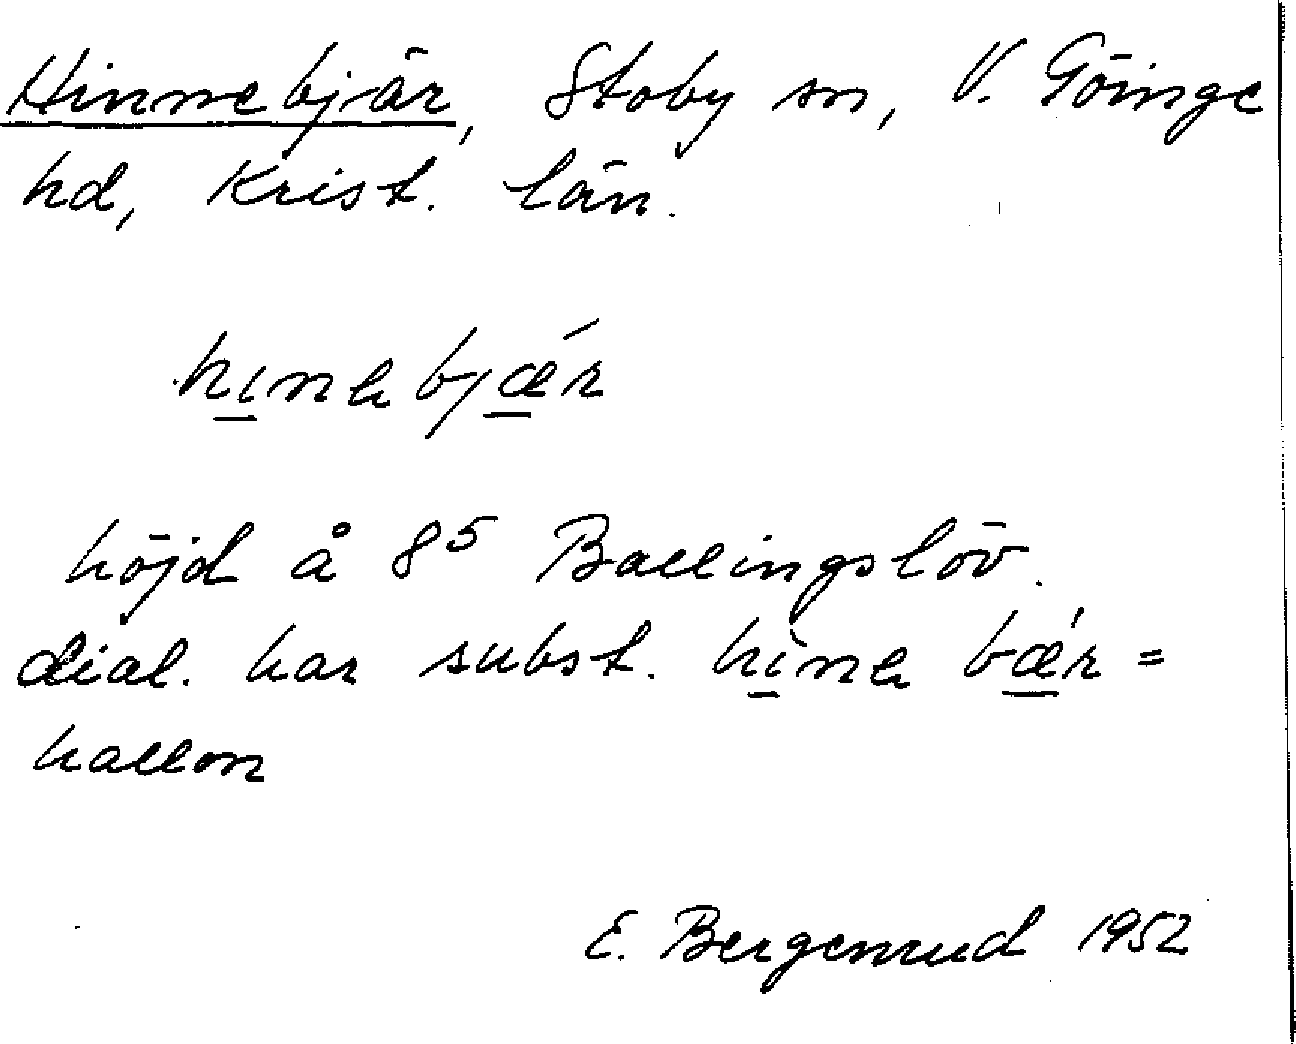 Hinnebjär, Stoby sn, V. Göinge
hd, Krist. län.
hı̲nəbjǽ̲r
höjd å 8⁵ Ballingslöv.
dial. har subst. hı̲̀nə bǽ̲r =
hallon
E. Bergenrud 1952